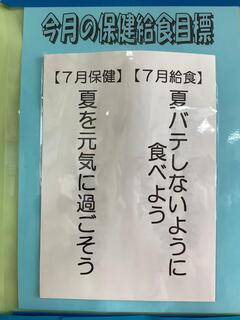 今月の保健給食目標
【７月給食】
夏バテしないように
食べよう
【７月保健】
夏を元気に過ごそう